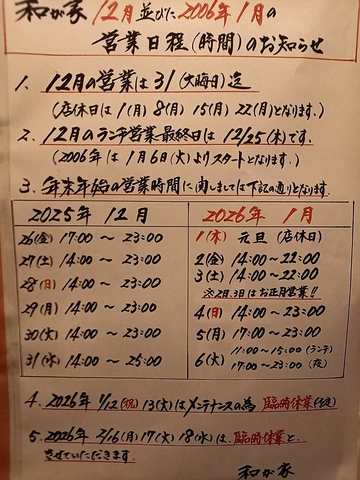 和が家 12月並びに2006年1月の
営業日程(時間)のお知らせ
1. 12月の営業は31(大晦日)迄
(店休日は1(月)8(月)15(月)22(月)となります.)
2. 12月のランチ営業最終日は12/25(木)です.
(2006年は1月6日(火)よりスタートとなります.)
3. 年末年始の営業時間に関しましては下記の通りとなります.
2025年12月
26(金) 17:00 〜 23:00
27(土) 14:00 〜 23:00
28(日) 14:00 〜 23:00
29(月) 14:00 〜 23:00
30(火) 14:00 〜 23:00
31(水) 14:00 〜 25:00
2026年1月
1(木) 元旦 (店休日)
2(金) 14:00〜22:00
3(土) 14:00〜22:00
※2日.3日はお正月営業!!
4(日) 14:00〜23:00
5(月) 17:00〜23:00
6(火) 11:00〜15:00(ランチ)
17:00〜23:00 (夜)
4. 2026年 1/12(祝)13(火)はメンテナンスの為 臨時休業(予定)
5. 2026年 2/16(月)17(火)18(水)は、臨時休業と
させていただきます.
和が家